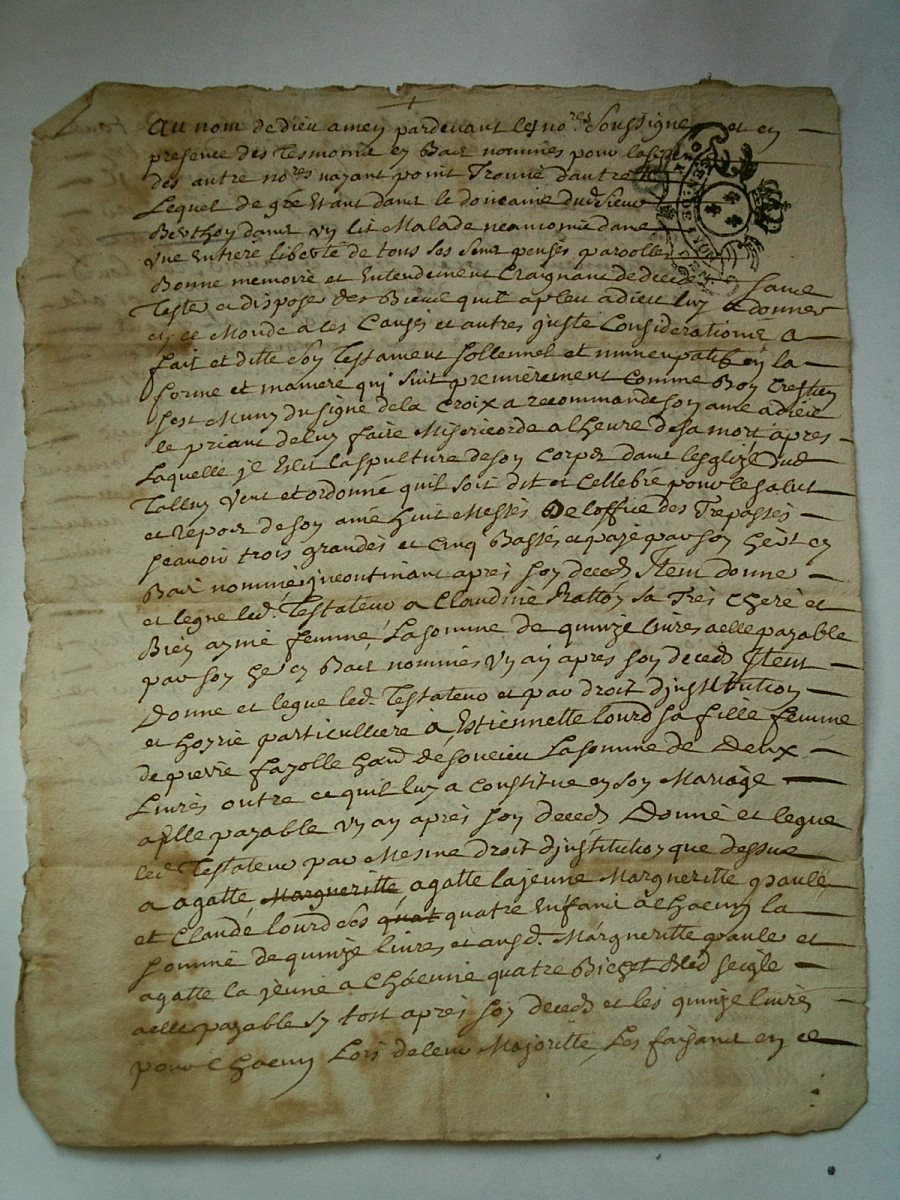 au nom de dieu amen pardevant les no.res soussigne et en
presence des tesmoins en Bas nommés pour
des autre no.res nayant point Trouvé dautre
Lequel de gré Etant dans le domaine dud. sieur
Berthon dans un lit Malade neanmoins dans
une Entiere liberté de tous ses sens pensés parolle
Bonne memoire et Entendement Craignant de deceder sans
Teste et dispose des Biens quil a pleu a dieu luy a donner
en ce Monde a ces Causes et autres juste Considerations a
fait et ditte son Testament sollennel et nuncupatif en la
forme et maniere qui suit premièrement comme Bon Crestien
sest Muny du signe de la Croix a recommandé son ame a dieu
le priant de luy faire Misericorde a lheure de sa mort apres
Laquelle je Eslit la spulture de son corps dans lesglize dud
Talluy Veut et ordonné quil soit dit et Cellebré pour le salut
et repos de son ame huit Messes De loffice des Trepassés
scavoir trois grandes et cinq Basses et payé par son hert en
Bas nommé incontinant après son deceds Item donne
et legue led. Testateur a Claudine Ratton sa Très chere et
Bien aymé femme La somme de quinze livres a elle payable
par son her en Bas nommés un an apres son deceds Item
Donne et legue led. Testateur et par droit dinstitution
et hoyrie particulliere à Estiennette lourd sa fille femme
de pierre fayolle de soucieu La somme de Deux
Livres outre ce quil luy a constitué en son Mariage
a Elle payable un an après son deceds Donne et legue
led. Testateur par Mesme droit dinstitution que dessus
a agatte Margueritte agatte la jeune Margueritte paule
et Claude lourd ses quat quatre Enfans à chacun la
somme de quinze livres et aus d. Margueritte paule et
agatte la jeune a chacune quatre Bichet Bled seigle
a elle payable sy tost après son deceds et les quinze livres
pour chacun Lors de leur Majoritte Les faisant en ce